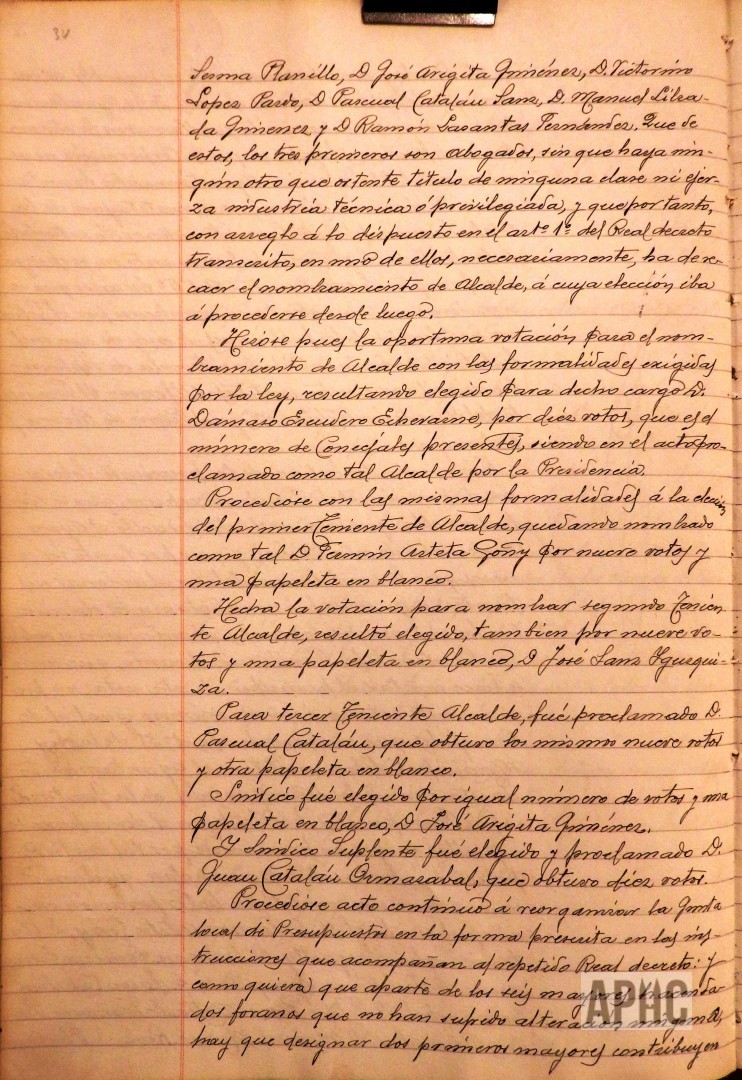 34
Serma Planillo, D José Arigita Giménez, D. Victorino
Lopez Pardo, D Pascual Catalán Sanz, D. Manuel Libra-
da Gimenez y D Ramón Lasantas Fernández. Que de
estos, los tres primeros son abogados, sin que haya nin-
gún otro que ostente título de ninguna clase ni ejer-
za industria técnica ó privilegiada, y que por tanto,
con arreglo á lo dispuesto en el artº 1º del Real decreto
transcrito, en uno de ellos, necesariamente, ha de re-
caer el nombramiento de Alcalde, á cuya elección iba
á procederse desde luego.
Hízose pues la oportuna votación para el nom-
bramiento de Alcalde con las formalidades exigidas
por la ley, resultando elegido para dicho cargo D.
Dámaso Escudero Echerasne, por diez votos, que es el
número de Concejales presentes, siendo en el acto pro-
clamado como tal Alcalde por la Presidencia.
Procedióse con las mismas formalidades á la elección
del primer Teniente de Alcalde, quedando nombrado
como tal D Fermín Arteta Goñy por nueve votos y
una papeleta en blanco.
Hecha la votación para nombrar segundo Tenien-
te Alcalde, resultó elegido, tambien por nueve vo-
tos y una papeleta en blanco, D José Sanz Ygusqui-
za.
Para tercer Teniente Alcalde, fué proclamado D.
Pascual Catalán, que obtuvo los mismos nueve votos
y otra papeleta en blanco.
Síndico fué elegido por igual número de votos y una
papeleta en blanco, D José Arigita Giménez.
Y Síndico Suplente fué elegido y proclamado D.
Juan Catalán Ormazabal, que obtuvo diez votos.
Procedióse acto continuo á reorganizar la Junta
local de Presupuestos en la forma prescrita en las ins-
trucciones que acompañan al repetido Real decreto: y
como quiera que aparte de los seis mayores hacenda-
dos foranos que no han sufrido alteración ninguna,
hay que designar dos primeros mayores contribuyen
APHC